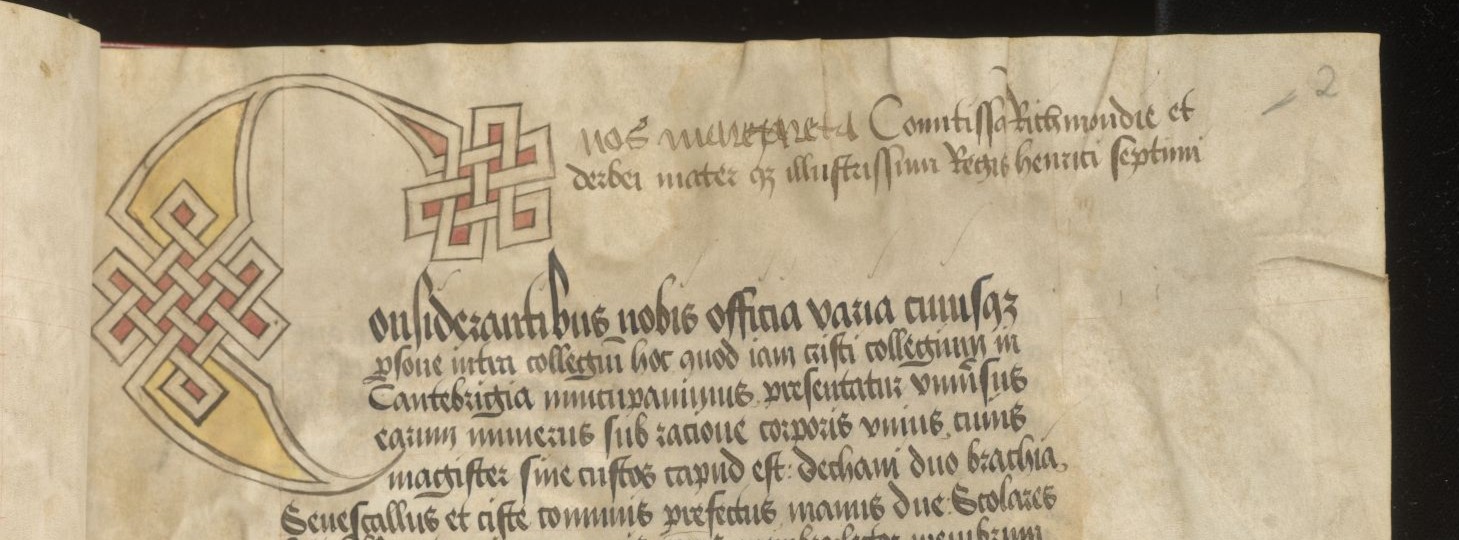 2
nos margareta Comitissa Richmondie et
derbei mater qz illustrissimi Regis henrici septimi
Considerantibus nobis officia varia cuiusqz
psone intra collegiū hoc quod iam cristi collegium in
Cantebrigia nuncupauimus presentatur vniūsus
earum numerus sub racione corporis vnius cuius
magister siue custos capud est: dechani duo brachia,
Senescallus et ciste cominis prefectus manus due Scolares
membrum